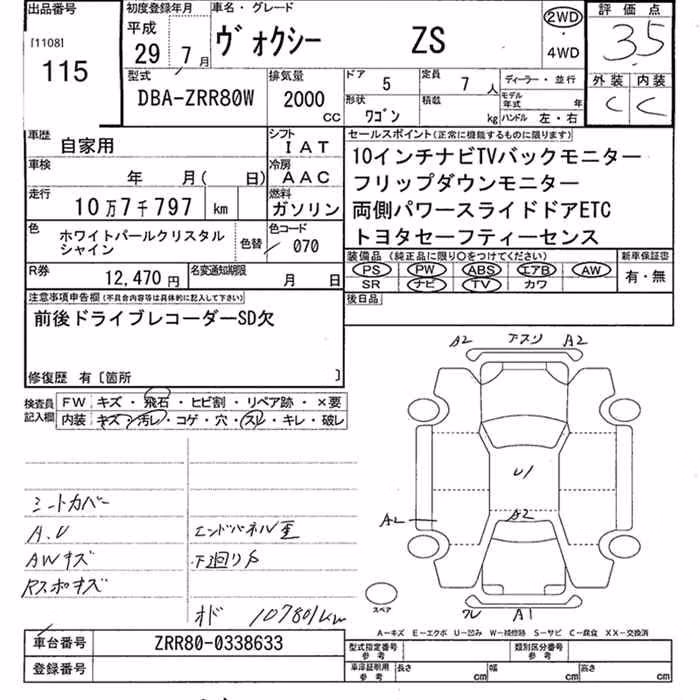 出品番号 初度登録年月 車名・グレード 評価点
[1108] 平成 ヴォクシー ZS 2WD 3.5
115 29年 7月 ・4WD
型式 排気量 ドア 5 定員 7人 ディーラー・並行 外装 内装
DBA-ZRR80W 2000 CC 形状 ワゴン 積載 kg モデル年式 年 C C
ハンドル 左・右
車歴 自家用 シフト IAT セールスポイント(正常に機能するものに限ります)
車検 年 月( 日) 冷房 AAC 10インチナビTVバックモニター
走行 10万7千797 km 燃料 ガソリン フリップダウンモニター
両側パワースライドドアETC
色 ホワイトパールクリスタルシャイン 色替 色コード 070 トヨタセーフティーセンス
装備品(純正品に限り〇をつけてください) 新車保証書
R券 12,470円 名変通知期限 月 日 PS PW ABS エアB AW 有・無
SR ナビ TV カワ
注意事項申告欄(不具合内容等は具体的に記入して下さい) 後日品
前後ドライブレコーダーSD欠
修復歴 有[箇所 ]
検査員記入欄 FW キズ・飛石・ヒビ割・リペア跡・×要
内装 キズ・汚レ・コゲ・穴・スレ・キレ・破レ
A2 A2
U1
A2 A2
シートカバー
A.U エンドパネル歪
AWキズ 下廻りS
Rスポキズ
オド 107801km
スペア
A1
A-キズ E-エクボ U-凹み W-補修跡 S-サビ C-腐食 XX-交換済
車台番号 ZRR80-0338633 型式指定番号 参考 類別区分番号 参考
登録番号 車庫証明用 参考 長さ cm 幅 cm 高さ cm